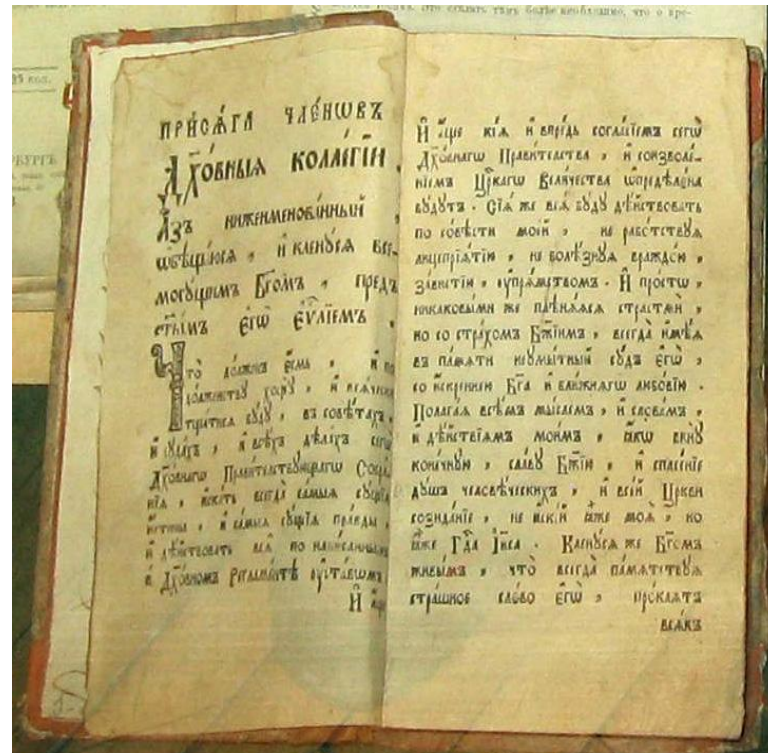 что о вре-
ПРИСѦ́ГА ЧЛЕ́НѠВЪ
ДХ҃О́ВНЫѦ КОЛЛЕ́ГІИ.
А҆́ЗЪ нижеименова́нный,
ѡ҆бѣща́юсѧ, и҆ кленꙋ́сѧ все-
могꙋ́щимъ Бг҃омъ, пред̾
ст҃ы́мъ є҆гѡ̀ є҆ѵⷢ҇лїемъ,
Что̀ до́лженъ є҆́смь, и҆ по
до́лженствꙋ хощꙋ̀, и҆ всѧ́чески
тщатисѧ бꙋ́дꙋ, въ совѣ́тахъ,
и҆ сꙋда́хъ, и҆ всѣ́хъ дѣ́лѣхъ сегѡ̀
Дх҃о́внагѡ Прави́тельствꙋющагѡ Собра́-
нїѧ, и҆ска́ть всегда̀ са́мыѧ сꙋ́щїѧ
и҆́стины, и҆ са́мыѧ сꙋ́щїѧ пра́вды,
и҆ дѣ́йствовать всѧ̑ по напи́саннымъ
в̾ Дх҃о́вномъ Регла́ментѣ ᲂу҆ста́вѡмъ
И҆ а҆́ще
И҆ а҆́ще кі́ѧ и҆ впре́дь согла́сїемъ сегѡ̀
Дх҃о́внагѡ Прави́телства, и҆ соизволе́-
нїемъ Цр҃кагѡ Вели́чества ѡ҆предѣле́на
бꙋ́дꙋтъ. Сїѧ̑ же всѧ̑ бꙋ́дꙋ дѣ́йствовать
по со́вѣсти мое́й, не рабо́тствꙋѧ
лицепрїѧ́тїю, не болѣ́знꙋѧ враждо́ю,
за́вистїю, ᲂу҆прѧ́мством. И҆ про́стѡ,
никаковы́ми же плѣнѧ́ѧсѧ страстьмѝ,
но со стра́хомъ Бж҃їимъ, всегда̀ и҆мѣ́ѧ
въ па́мѧти неꙋмы́тный сꙋ́дъ є҆гѡ̀,
со и҆́скреннею Бг҃а и҆ бли́жнѧгѡ любо́вїю.
Полага́ѧ всѣ́мъ мы́слемъ, и҆ слове́мъ,
и҆ дѣ́йствїѧмъ мои́мъ, ꙗ҆́кѡ винꙋ̀
коне́чнꙋю, сла́вꙋ Бж҃їю, и҆ спасе́нїе
дꙋ́шъ человѣ́ческихъ, и҆ все́й Цр҃кви
созида́нїе, не и҆скі́й ꙗ҆̀же моѧ̑, но
ꙗ҆̀же Гд҃а І҆и҃са. Кленꙋ́сѧ же Бг҃омъ
живы́мъ, что̀ всегда̀ па́мѧтствꙋѧ
стра́шное сло́во є҆гѡ̀, про́клѧтъ
всѧ́къ